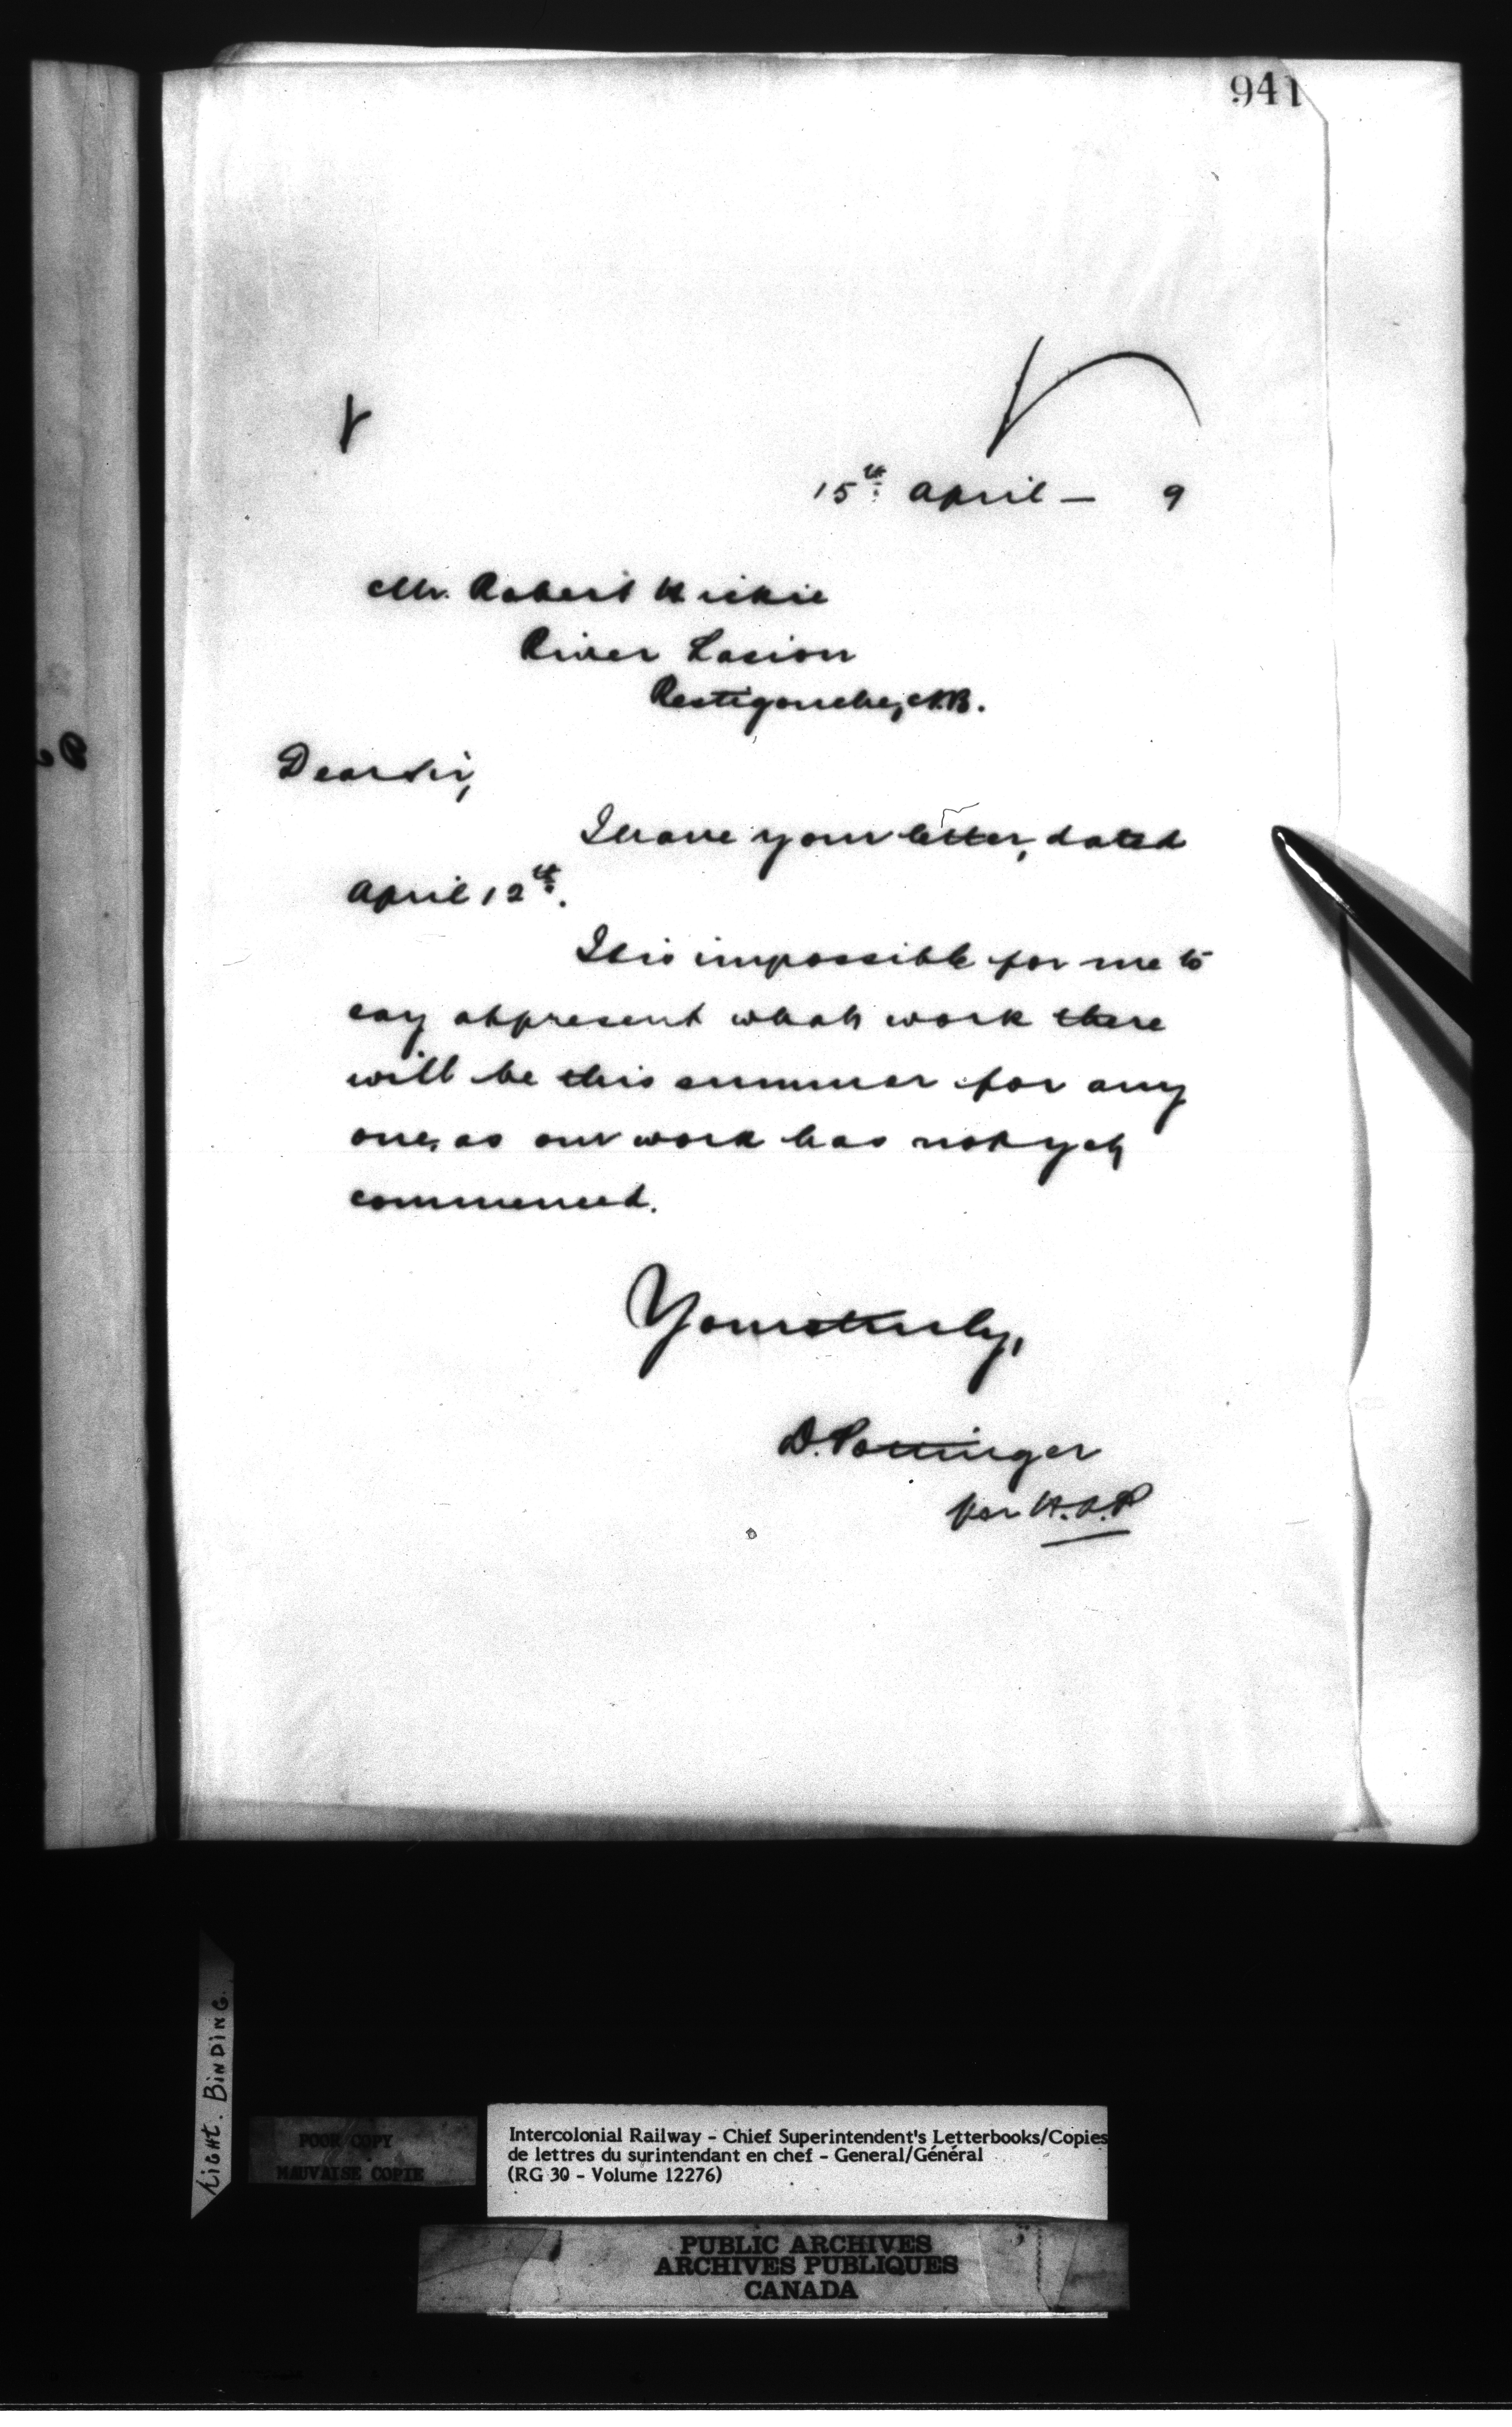 941
15th April — 9
Mr. Robert Hickie
River Louison
Restigouche, N.B.
Dear Sir,
I have your letter, dated
April 12th.
It is impossible for me to
say at present what work there
will be this summer for any
one, as our work has not yet
commenced.
Yours truly,
D. Pottinger
per
LIGHT. BINDING.
POOR COPY
MAUVAISE COPIE
Intercolonial Railway - Chief Superintendent's Letterbooks/Copies
de lettres du surintendant en chef - General/Général
(RG 30 - Volume 12276)
PUBLIC ARCHIVES
ARCHIVES PUBLIQUES
CANADA